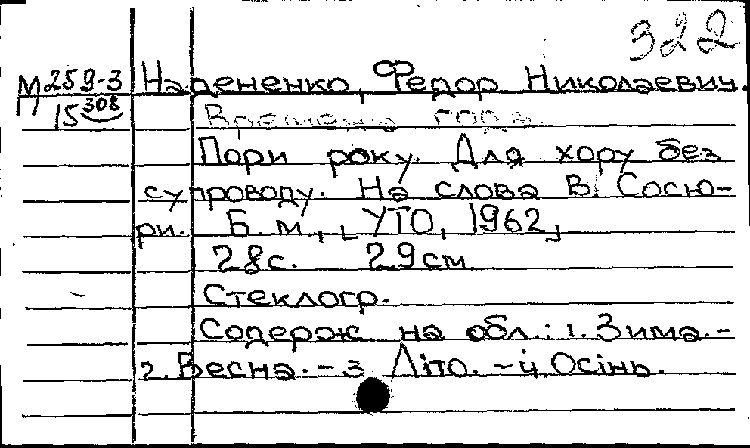 322
М 259-3
15 308
Надененко, Федор Николаевич.
Времена года.
Пори року. Для хору без
супроводу. На слова В. Сосю-
ри. Б. м., [УТО, 1962]
28с. 29см
Стеклогр.
Содерж на обл.: 1. Зима. -
2. Весна. - 3 Літо. - 4. Осінь.